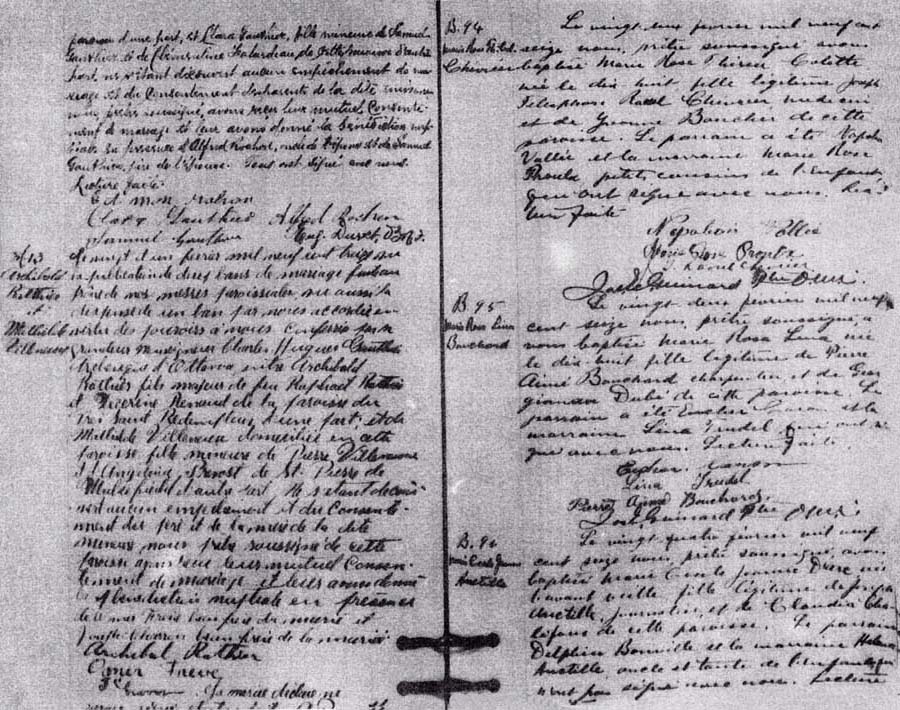 paroisse d'une part, et Clara Gauthier, fille mineure de Samuel
Gauthier et de Falardeau de cette paroisse d'autre
part, ne s'étant découvert aucun empêchement de ma-
riage et du consentement des parents de la dite mineure
nous, prêtre soussigné, avons reçu leur mutuel consente-
ment de mariage et leur avons donné la bénédiction nup-
tiale en présence d'Alfred Rochon, oncle de l'époux et de Samuel
Gauthier, père de l'épouse. qui ont signé avec nous.
Lecture faite.
Ed mon Rochon
Clara Gauthier Alfred Rochon
Samuel Gauthier
M 13
Archibald
Rathier
et
Mathilde
Villeneuve
Le vingt et un février mil neuf cent seize vu
la publication de deux bans de mariage faite au
prône de nos messes paroissiales, vu aussi la
dispense d'un ban par nous accordée en
vertu des pouvoirs à nous conférés par sa
grandeur Monseigneur Charles Hugues Gauthier
Archevêque d'Ottawa entre Archibald
Rathier fils majeur de feu Raphael Rathier
et Renaud de la paroisse du
Très Saint Rédempteur, d'une part, et de
Mathilde Villeneuve domiciliée en cette
paroisse fille mineure de Pierre Villeneuve
et d'Angelina Prevost de St. Pierre de
d'autre part, Ne s'étant décou-
vert aucun empêchement et du consente-
ment du père et de la mère de la dite
mineure, nous prêtre soussigné de cette
paroisse avons reçu leur mutuel consen-
tement de mariage et leurs avons donné
la bénédiction nuptiale en présence
de du marié et
de la mariée
Archibal Rathier
Omer
La mariée déclare ne
B. 94
Marie Rose
Chevrier
Le vingt-deux février mil neuf cent
seize nous, prêtre soussigné, avons
baptisé Marie Rose Colette
née le dix huit fille légitime Joseph
Télesphore Raoul Chevrier médecin
et de Yvonne Boucher de cette
paroisse. Le parrain a été Napoléon
Vallée et la marraine Marie Rose
Proulx petits cousins de l'enfant
qui ont signé avec nous. Lec-
ture faite
Napoléon Vallée
Marie Rose Proulx
Raoul Chevrier
Jos. Guinard Ptre O.M.I.
B. 95
Marie Rosa Lina
Bouchard
Le vingt deux février mil neuf
cent seize nous, prêtre soussigné, a-
vons baptisé Marie Rosa Lina, née
le dix huit fille légitime de Pierre
Aimé Bouchard charpentier et de Geor-
gianna Dubé de cette paroisse. Le
parrain a été et la
marraine Lina Trudel qui ont si-
gné avec nous. Lecture faite.
Lina Trudel
Pierre Aimé Bouchard
Jos. Guinard Ptre O.M.I.
B. 96
Marie Jeanne
Anctille
Le vingt quatre février mil neuf
cent seize nous, prêtre soussigné, avons
baptisé Marie Jeanne née
l'avant veille fille légitime de Joseph
Anctille, journalier, et de Claudia
de cette paroisse. Le parrain
Delphis Bonville et la marraine Helena
Anctille, oncle et tante de l'enfant qui
n'ont pas signé avec nous. Lecture